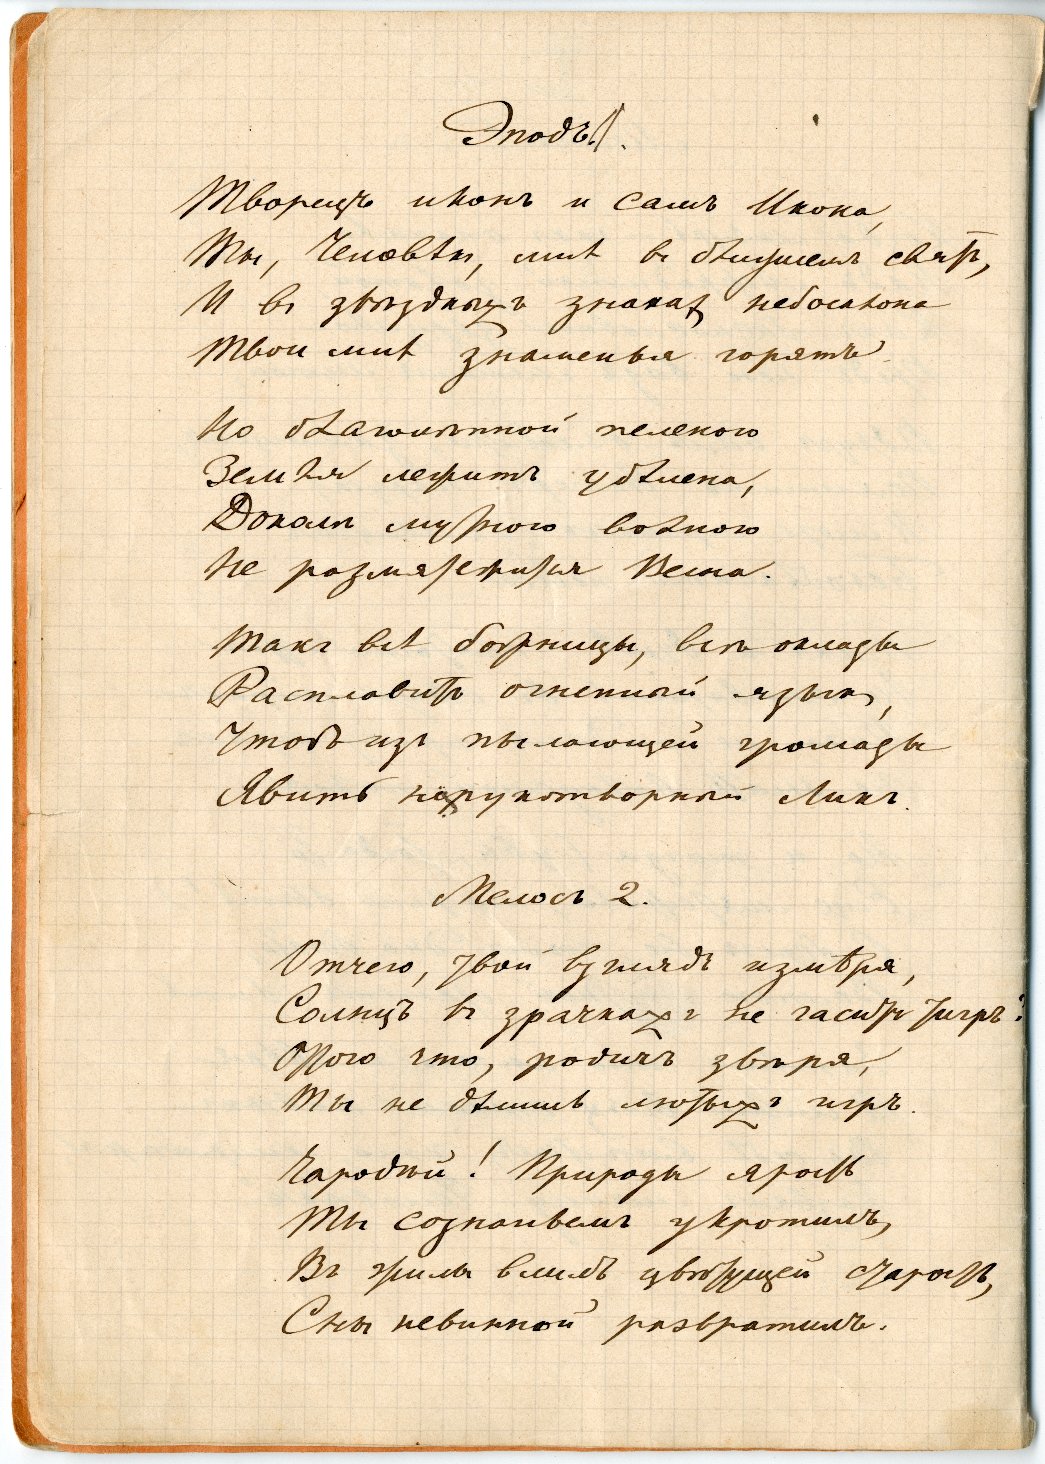 Эподъ 1.
Творецъ иконъ и самъ Икона,
Ты, Человѣкъ, мнѣ въ ближнемъ святъ,
И въ звѣздныхъ знакахъ небосклона
Твои мнѣ знаменья горятъ.
Но благолѣпной пеленою
Земля лежитъ убѣлена,
Доколь мутною волною
Не размятежится Весна.
Такъ всѣ божницы, всѣ оклады
Расплавитъ огненный языкъ,
Чтобъ изъ пылающей громады
Явить нерукотворный Ликъ.
Мелосъ 2.
Отчего, твой взглядъ измѣря,
Солнцъ въ зрачкахъ не гаситъ тигръ?
Оттого что, родичъ звѣря,
Ты не дѣлишь лютыхъ игръ.
Чародѣй! Природы ярость
Ты сознаньемъ укротилъ,
Въ жилы влилъ цвѣтущей старость,
Сны невинной развратилъ.